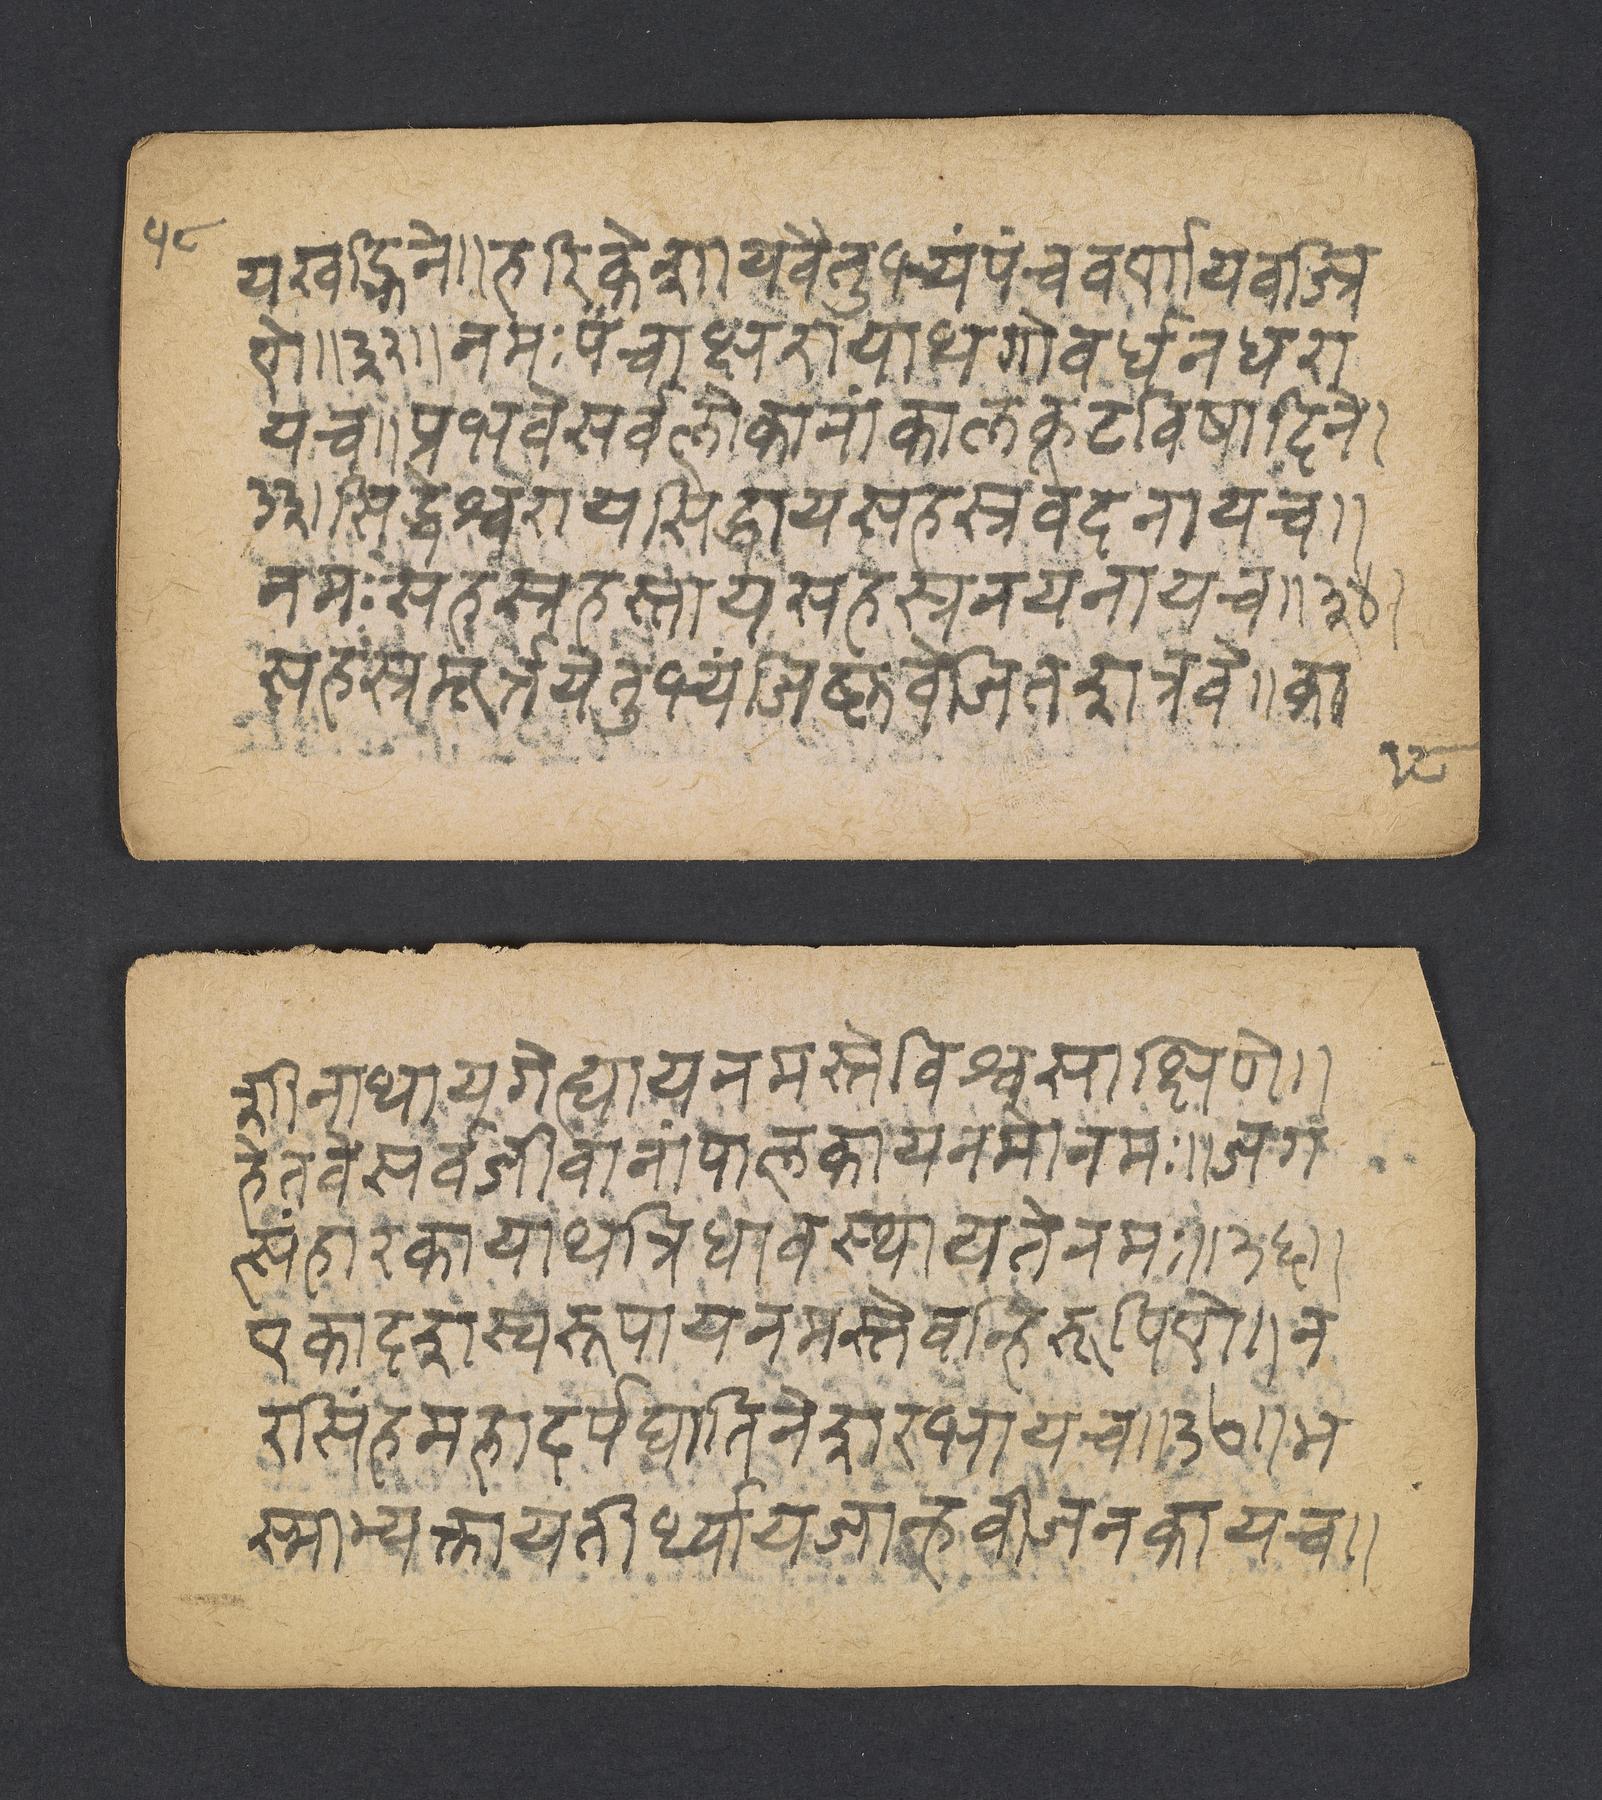 ५८
यखड्गिने॥हरिकेशायवैतुभ्यंपंचवर्णायवज्रि
णे॥३२॥नमःपंचाक्षरायाथगोवर्धनधरा
यच॥प्रभवेसर्वलोकानांकालकूटविषादिने।
३३।सिद्धेश्वरायसिद्धायसहस्त्रवदनायच॥
नमःसहस्त्रहस्तायसहस्त्रनयनायच॥३४।
सहस्त्रमूर्त्तयेतुभ्यंजिष्णवेजितशत्रवे॥का
५८
शीनाथायगेह्यायनमस्तेविश्वसाक्षिणे॥
हेतवेसर्वजीवानांपालकायनमोनमः॥जग
त्संहारकायाथत्रिधावस्थायतेनमः॥३६॥
एकादशस्वरूपायनमस्तेवन्हिरूपिणे॥न
रसिंहमहादर्पघातिनेशरभायच॥३७॥भ
स्माभ्यक्तायतीर्थ्यायजान्हवीजनकायच॥